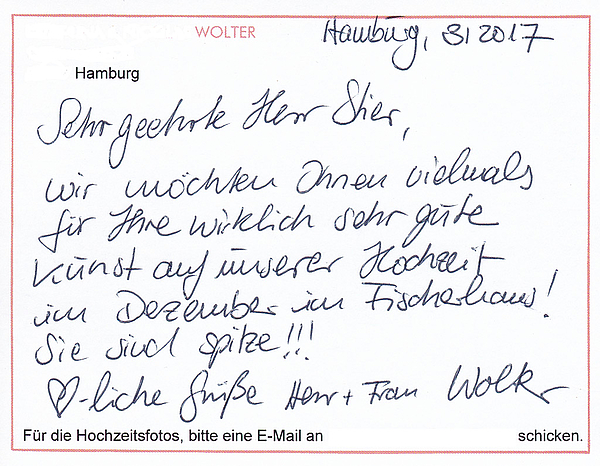 WOLTER
Hamburg, 3/2017
Hamburg
Sehr geehrte Herr Stier,
wir möchten Ihnen vielmals
für Ihre wirklich sehr gute
Kunst auf unserer Hochzeit
im Dezember im Fischerhaus!
Sie sind spitze!!!
♡-liche Grüße Herr + Frau Wolter
Für die Hochzeitsfotos, bitte eine E-Mail an schicken.